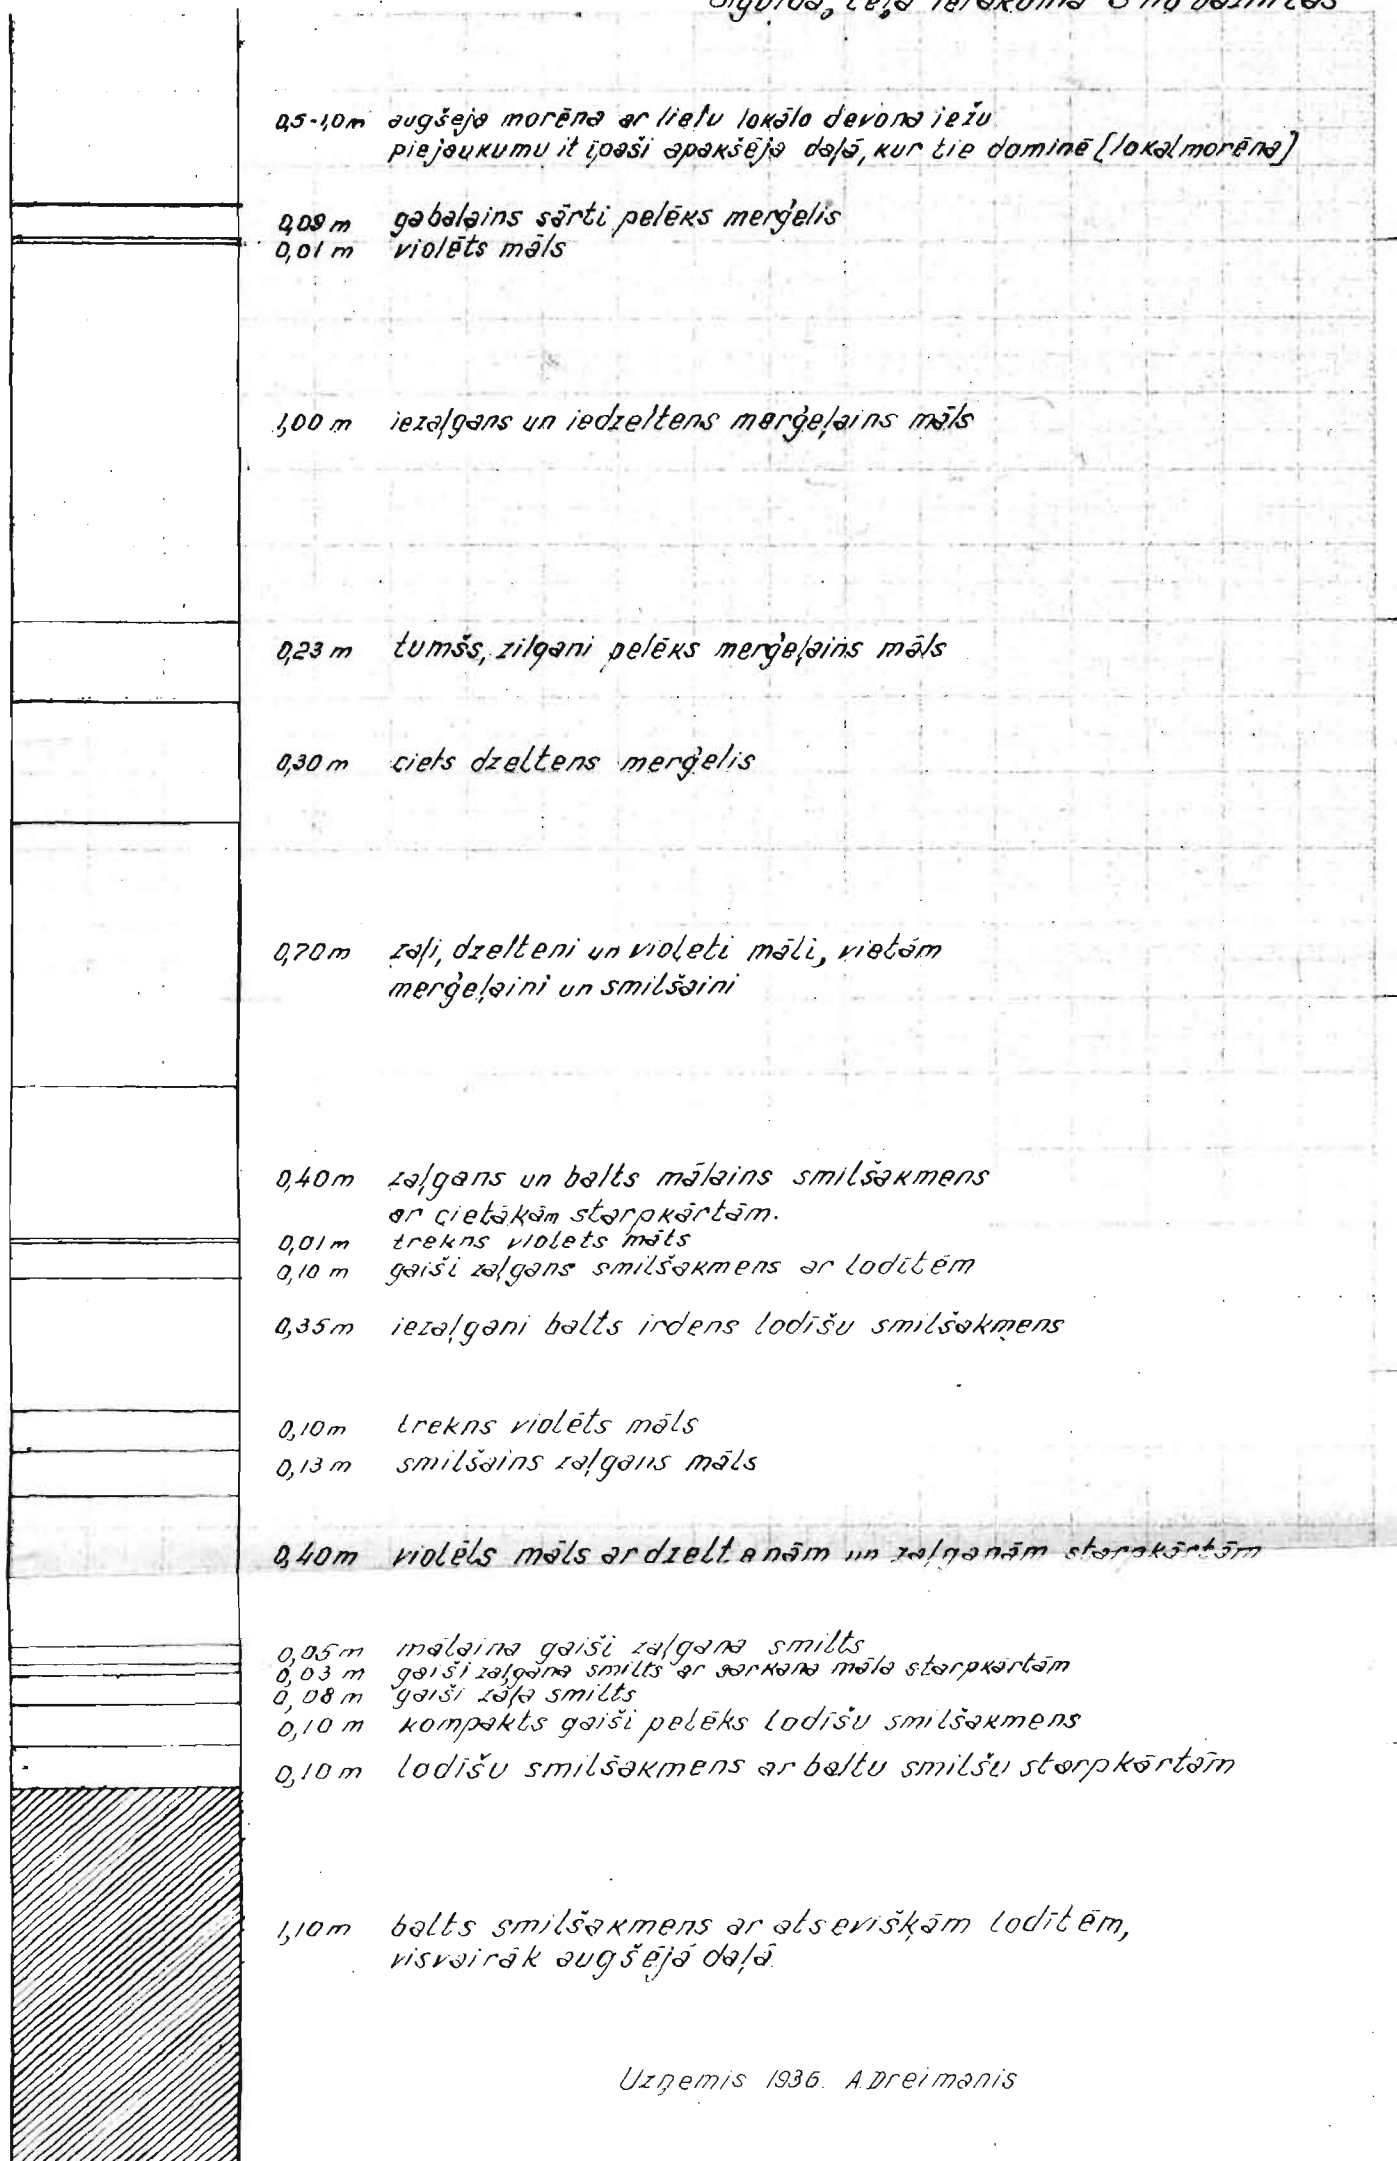 Sigulda, ceļa ierakumā S no baznīcas
0,5-1,0m augšejā morēna ar lielu lokālo devona iežu
piejaukumu it īpaši apakšējā daļā, kur tie dominē [lokālmorēna]
0,09 m gabalains sārti pelēks merģelis
0,01 m violēts māls
1,00 m iezaļgans un iedzeltens merģeļains māls
0,23 m tumšs, zilgani pelēks merģeļains māls
0,30 m ciets dzeltens merģelis
0,70 m zaļi, dzelteni un violeti māli, vietām
merģeļaini un smilšaini
0,40 m zaļgans un balts mālains smilšakmens
ar cietākām starpkārtām.
0,01 m trekns violets māls
0,10 m gaiši zaļgans smilšakmens ar lodītēm
0,35 m iezaļgani balts irdens lodīšu smilšakmens
0,10 m trekns violēts māls
0,13 m smilšains zaļgans māls
0,40 m violēts māls ar dzeltenām un zaļganām starpkārtām
0,05 m mālaina gaiši zaļgana smilts
0,03 m gaiši zaļgana smilts ar sarkana māla starpkārtām
0,08 m gaiši zaļa smilts
0,10 m kompakts gaiši pelēks lodīšu smilšakmens
0,10 m lodīšu smilšakmens ar baltu smilšu starpkārtām
1,10 m balts smilšakmens ar atsevišķām lodītēm,
visvairāk augšējā daļā.
Uzņemis 1936. A.Dreimanis